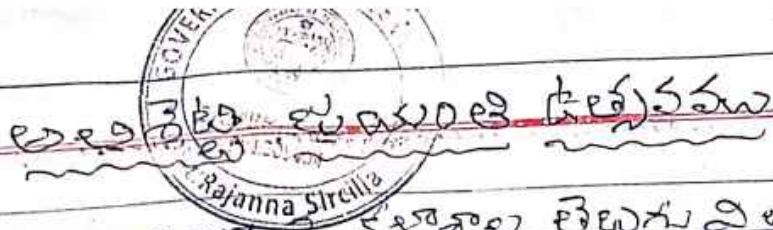 GOVER
అలిశెట్టి జయంతి ఉత్సవము
Rajanna Sircilla
కళాశాల తెలుగు వి